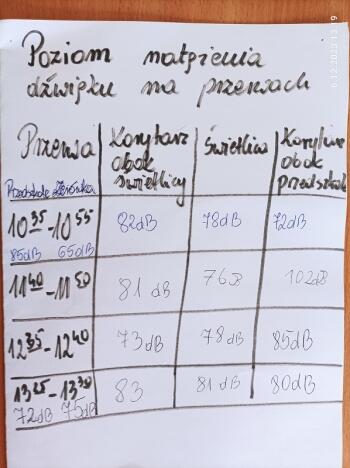 Poziom natężenia
dźwięku na przerwach
Przerwa
Korytarz
obok
świetlicy
Świetlica
Korytarz
obok
przedszkola
Przedszkole Zerówka
10 35 - 10 55
82dB
78dB
72dB
85dB 65dB
11 40 - 11 50
81 dB
76 dB
102dB
12 35 - 12 40
73dB
78dB
85dB
13 25 - 13 30
83
81 dB
80dB
72dB 75dB
6.12.2023 13:19